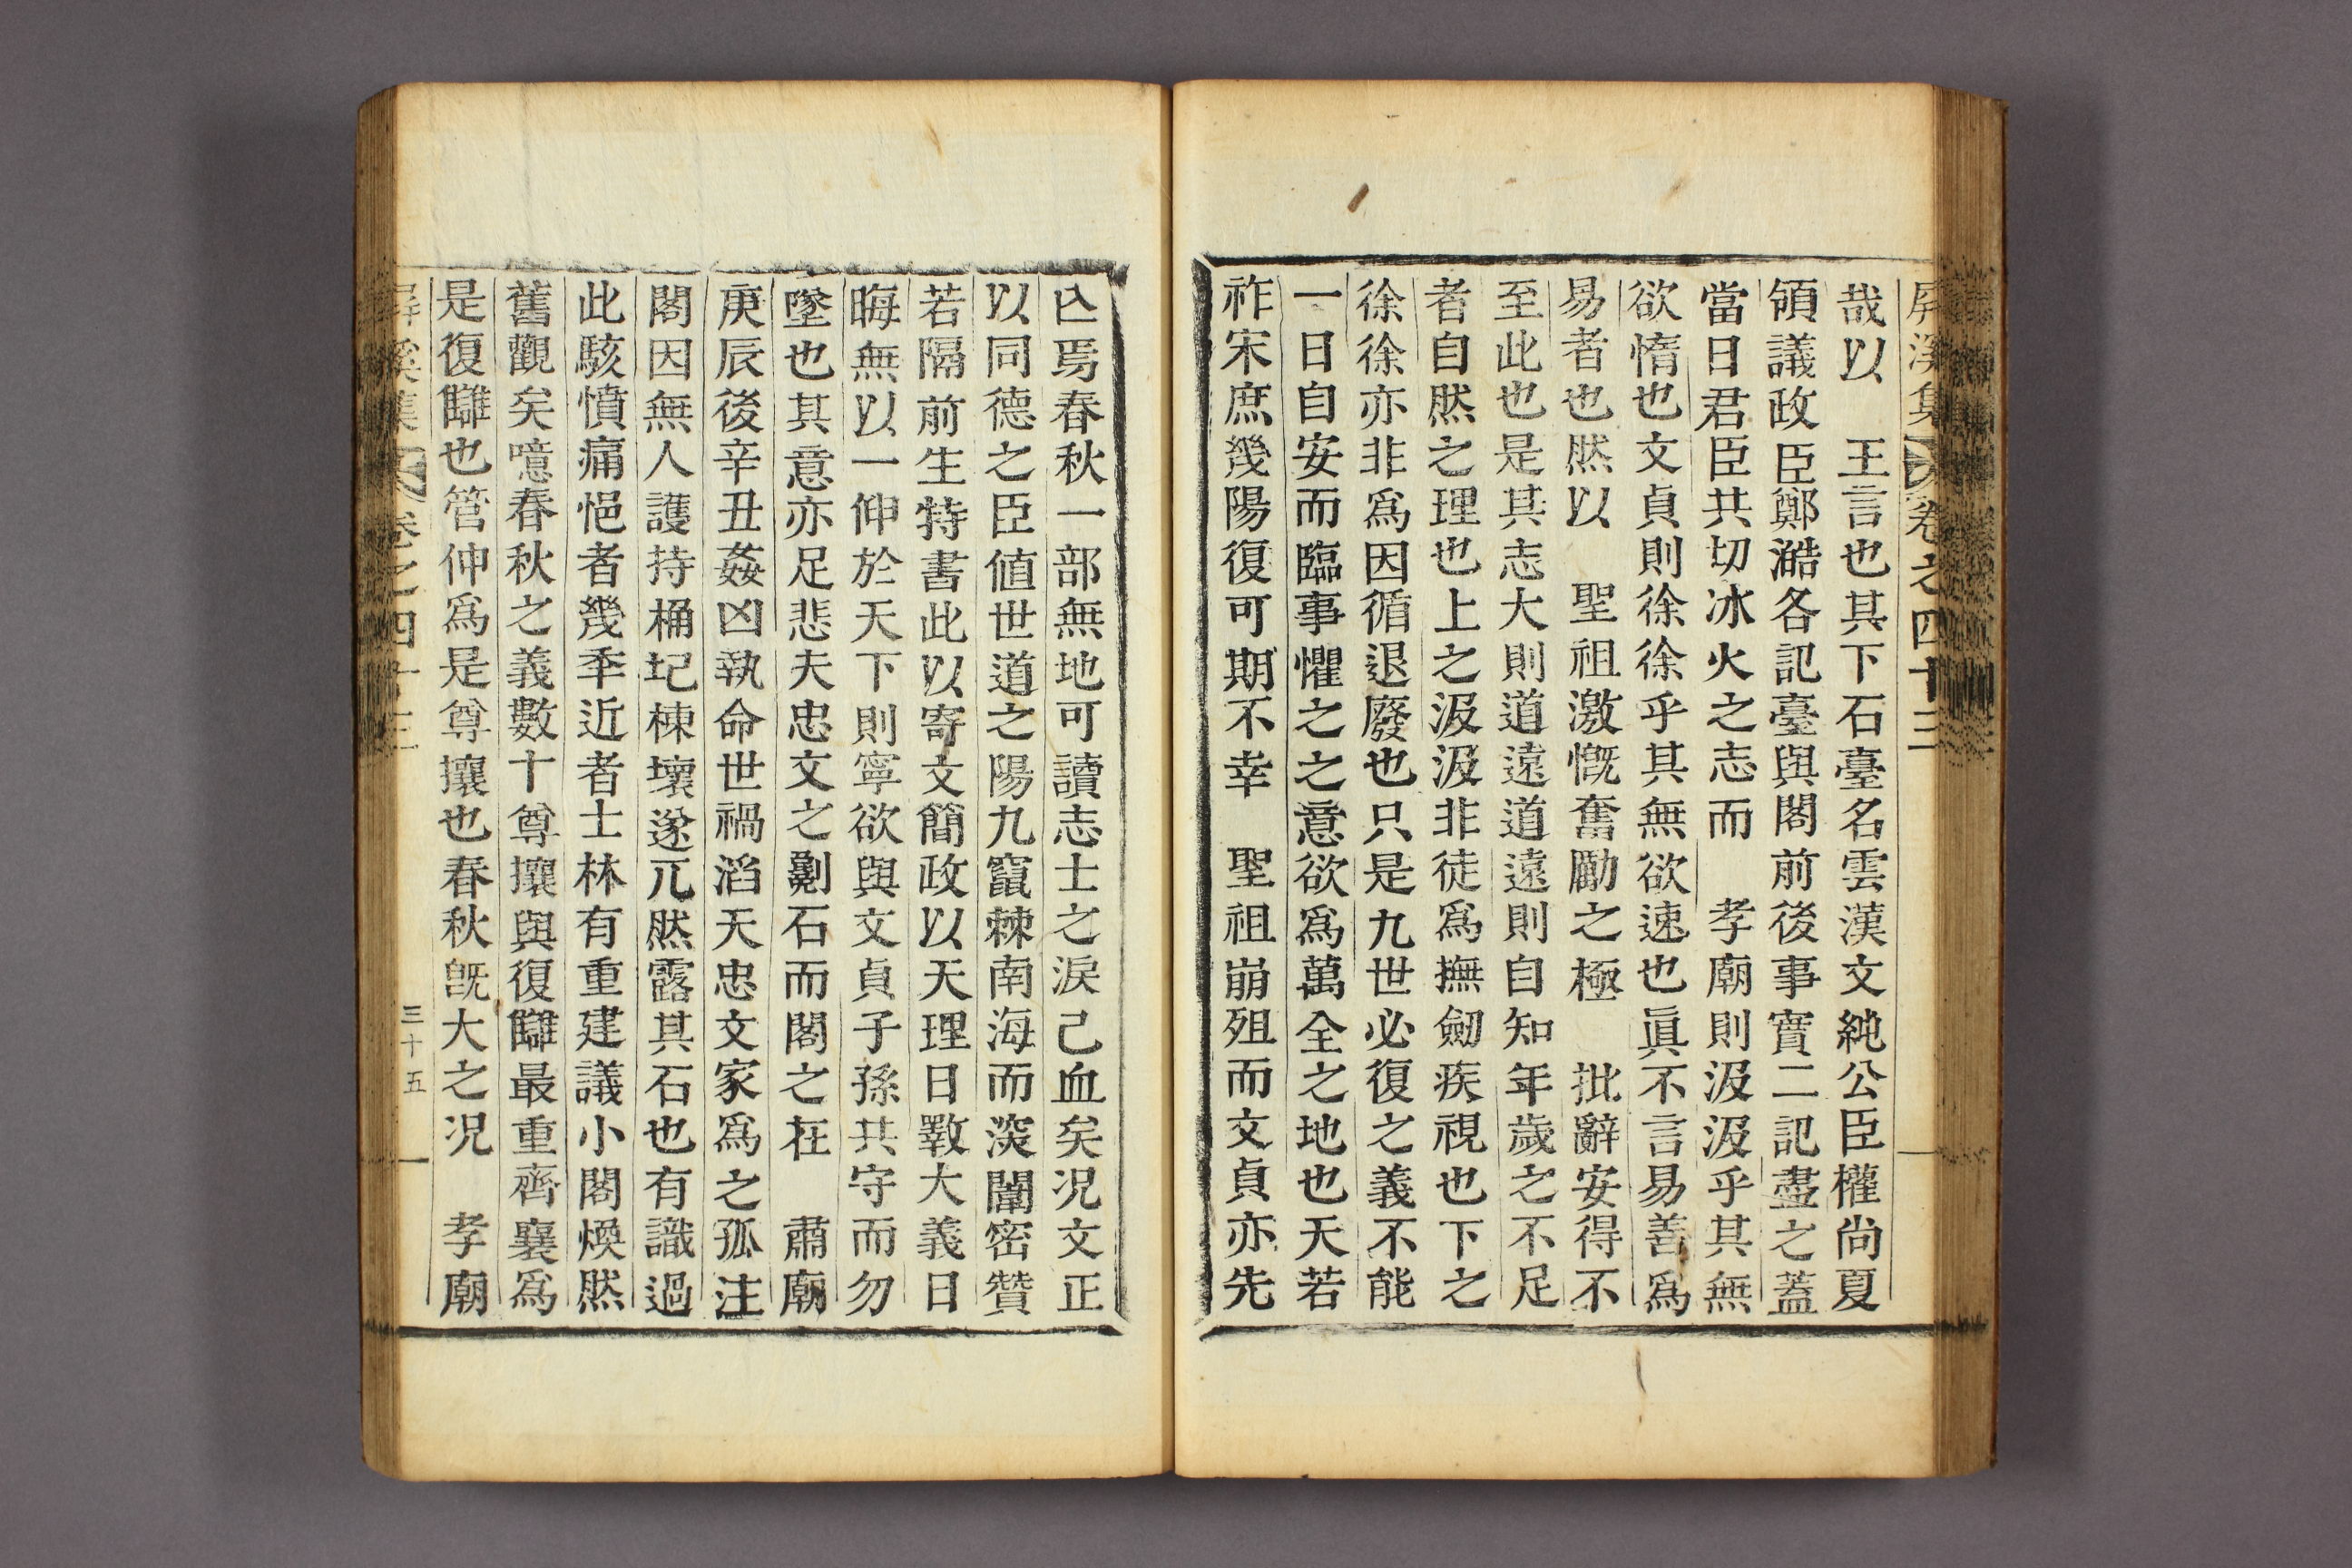 屛溪集 卷之四十三
哉以 王言也其下石臺名雲漢文純公臣權尚夏
領議政臣鄭澔各記臺與閣前後事實二記盡之蓋
當日君臣共切冰火之志而 孝廟則汲汲乎其無
欲惰也文貞則徐徐乎其無欲速也眞不言易善爲
易者也然以 聖祖激慨奮勵之極 批辭安得不
至此也是其志大則道遠道遠則自知年歲之不足
者自然之理也上之汲汲非徒爲撫劒疾視也下之
徐徐亦非爲因循退廢也只是九世必復之義不能
一日自安而臨事懼之之意欲爲萬全之地也天若
祚宋庶幾陽復可期不幸 聖祖崩殂而文貞亦先
亾焉春秋一部無地可讀志士之淚已血矣况文正
以同德之臣値世道之陽九竄棘南海而深闈密贊
若隔前生特書此以寄文簡政以天理日斁大義日
晦無以一伸於天下則寧欲與文貞子孫共守而勿
墜也其意亦足悲夫忠文之劖石而閣之在 肅廟
庚辰後辛丑姦凶執命世禍滔天忠文家爲之孤注
閣因無人護持桷圮棟壞遂兀然露其石也有識過
此駭憤痛悒者幾季近者士林有重建議小閣煥然
舊觀矣噫春秋之義數十尊攘與復讎最重齊襄爲
是復讎也管仲爲是尊攘也春秋旣大之况 孝廟
屛溪集 卷之四十三 三十五